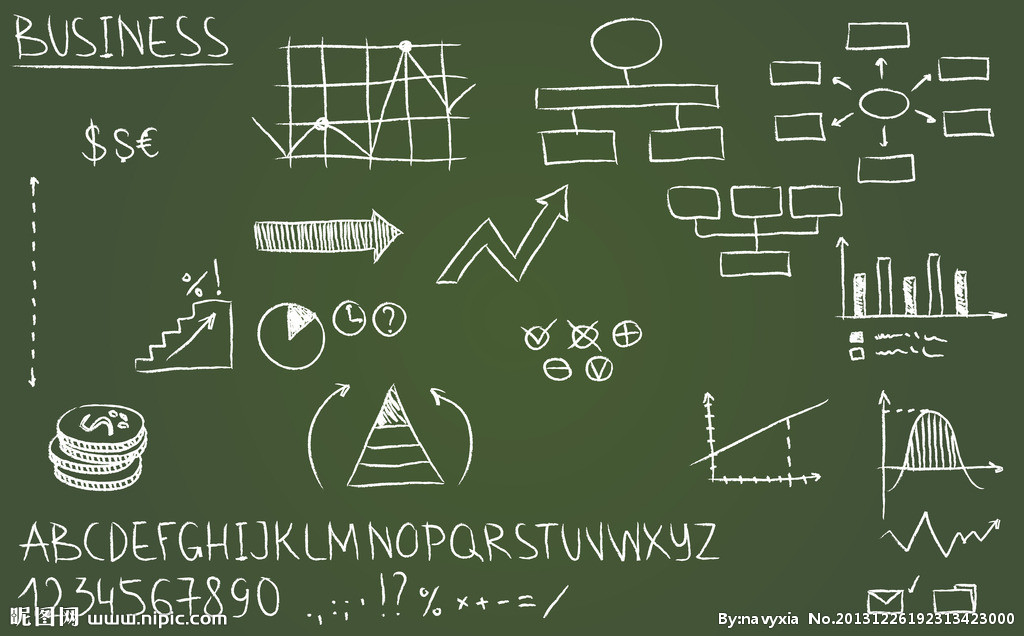 BUSINESS
$ $ €
% !
?
ABCDEFGHIJKLMNOPQRSTUVWXYZ
1234567890 . , : ; ' ! ? % × + - = /
昵图网 www.nipic.com
By:navyxia No.20131226192313423000